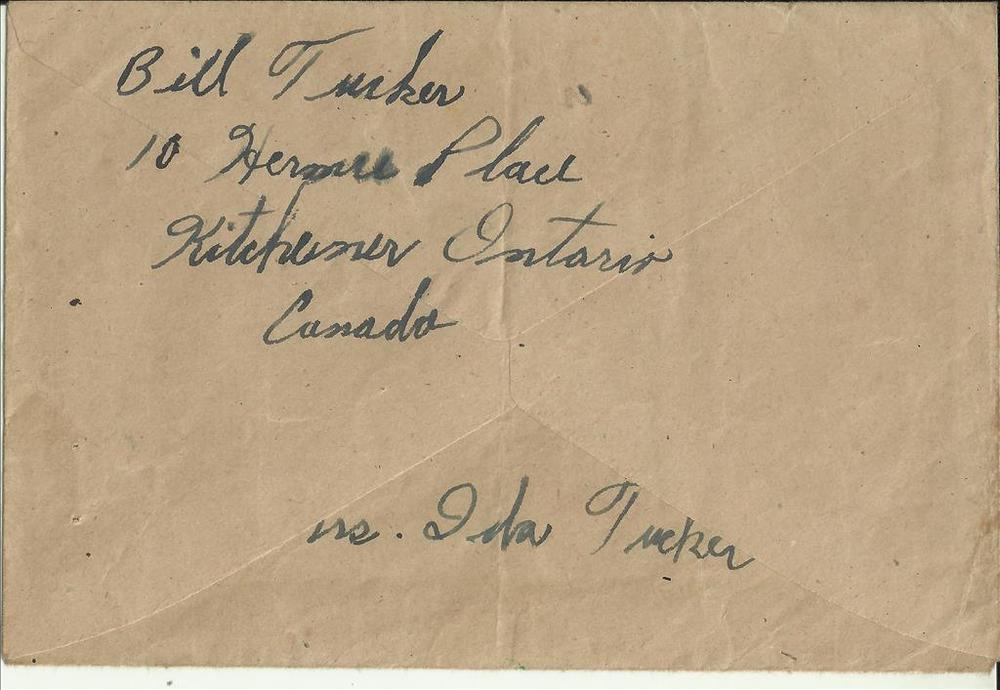 Bill Tucker
10 Place
Kitchener Ontario
Canada
Ida Tucker